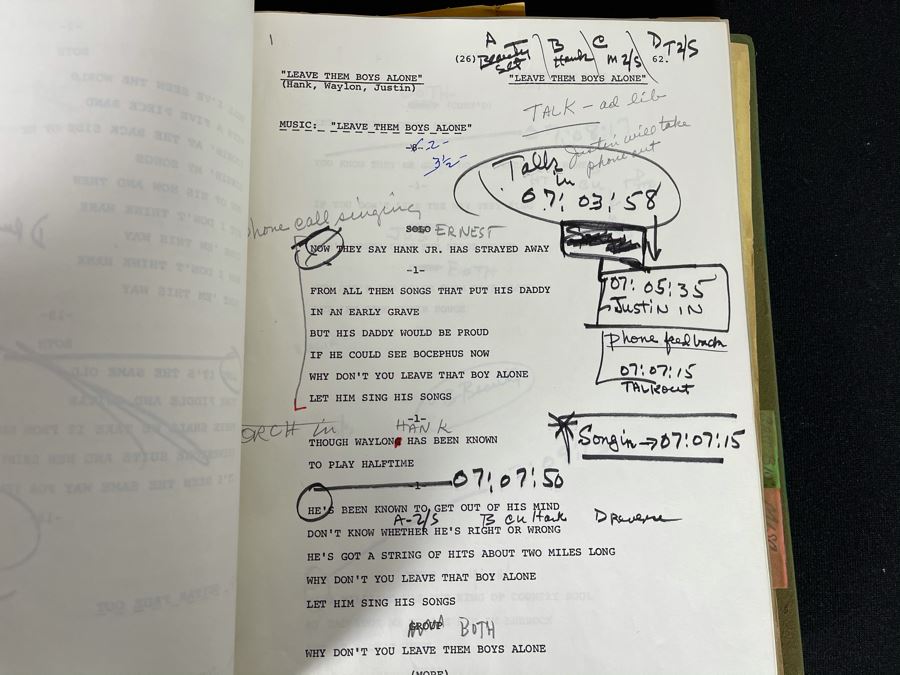 1
A B C D T2/S
(26) Beauty Set Hank m 2/S 62.
"LEAVE THEM BOYS ALONE" "LEAVE THEM BOYS ALONE"
(Hank, Waylon, Justin)
TALK - ad lib
MUSIC: "LEAVE THEM BOYS ALONE"
-2-
3½-
Justin will take
phone out
Talk
in
07:03:58
phone call singing
SOLO ERNEST
NOW THEY SAY HANK JR. HAS STRAYED AWAY
-1-
FROM ALL THEM SONGS THAT PUT HIS DADDY
IN AN EARLY GRAVE
BUT HIS DADDY WOULD BE PROUD
IF HE COULD SEE BOCEPHUS NOW
WHY DON'T YOU LEAVE THAT BOY ALONE
LET HIM SING HIS SONGS
07:05:35
Justin IN
phone feedback
07:07:15
TALKout
-1-
ORCH in HANK
THOUGH WAYLON HAS BEEN KNOWN
TO PLAY HALFTIME
Song in → 07:07:15
-1-
07:07:50
HE'S BEEN KNOWN TO GET OUT OF HIS MIND
A-2/S B CU Hank D reverse
DON'T KNOW WHETHER HE'S RIGHT OR WRONG
HE'S GOT A STRING OF HITS ABOUT TWO MILES LONG
WHY DON'T YOU LEAVE THAT BOY ALONE
LET HIM SING HIS SONGS
GROUP BOTH
WHY DON'T YOU LEAVE THEM BOYS ALONE
(MORE)